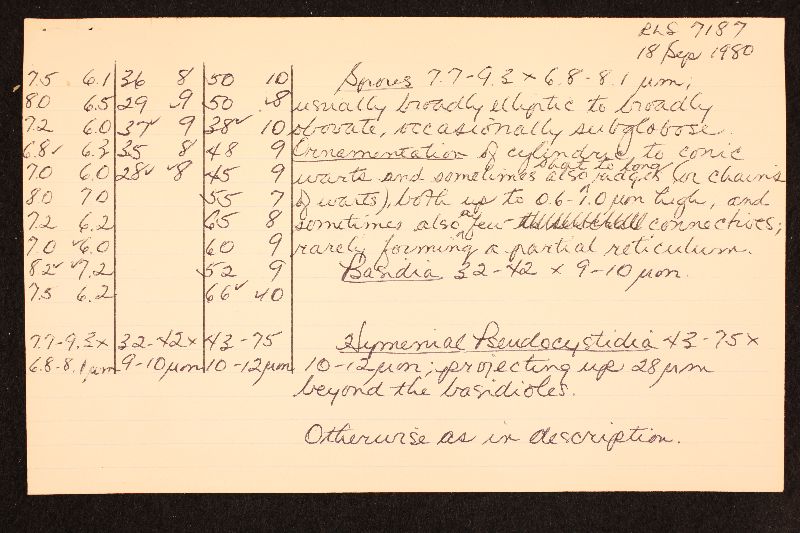 RLS 7187
18 Sep 1980
7.5 6.1 36 8 50 10
80 6.5 29 9 50 8
7.2 6.0 37 9 38 10
6.8 6.3 35 8 48 9
7.0 6.0 28 8 45 9
80 70 55 7
7.2 6.2 65 8
7.0 6.0 60 9
82 7.2 52 9
7.5 6.2 66 10
7.7-9.3 x 32-42 x 43-75
6.8-8.1 µm 9-10 µm 10-12 µm
Spores 7.7-9.3 x 6.8-8.1 µm;
usually broadly elliptic to broadly
obovate, occasionally subglobose.
Ornamentation of cylindric to conic
warts and sometimes also short to long ridges (or chains
of warts), both up to 0.6-1.0 µm high, and
sometimes also a few connectives;
rarely forming a partial reticulum.
Basidia 32-42 x 9-10 µm.
Hymenial Pseudocystidia 43-75 x
10-12 µm; projecting up 28 µm
beyond the basidioles.
Otherwise as in description.